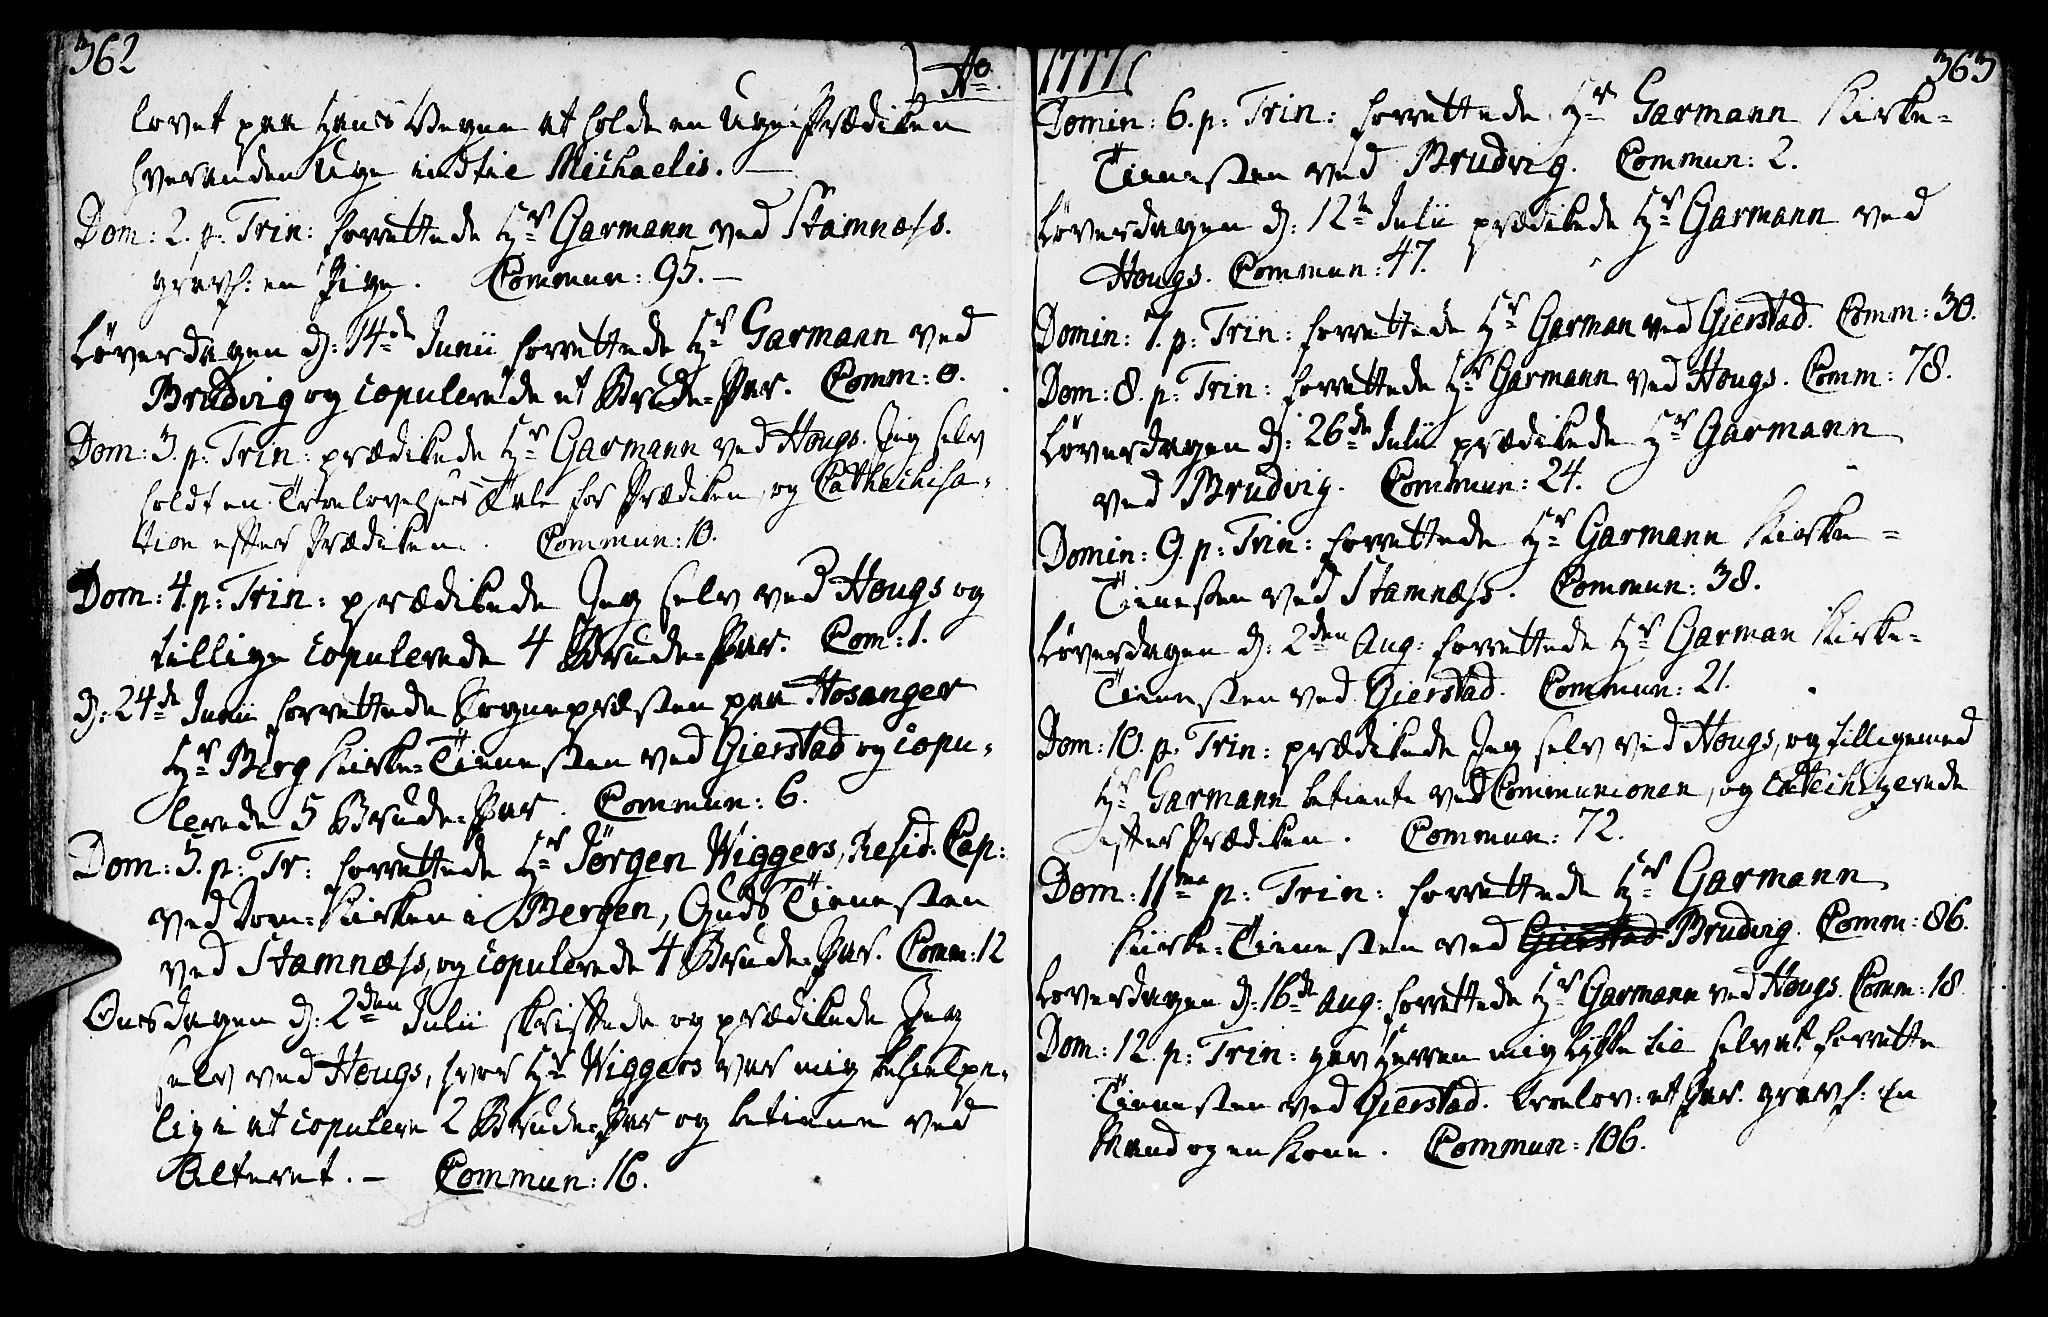 362
Ao.
lovet paa Hans Vegne at holde en Uge-Prædiken
hveranden Uge indtil Michaelis. —
Dom: 2. p: Trin: forrettede Hr Garmann ved Stamnæss.
græsf: en Pige. Commun: 95. —
Løverdagen d: 14de Junii forrettede Hr Garmann ved
Brudvig og copulerede et Brude-Par. Comm: 0.
Dom: 3. p: Trin: prædikede Hr Garmann ved Hougs. Jeg selv
holdt en Troelovelses Tale for Prædiken, og Catheihisa-
tion efter Prædiken. Commun: 10.
Dom: 4. p: Trin: prædikede Jeg selv ved Hougs og
tillige copulerede 4 Brude-Par. Com: 1.
d: 24de Junii forrettede Sognepræsten paa Hosanger
Hr Berg Kirke-Tienesten ved Gierstad og copu-
lerede 5 Brude-Par. Commun: 6.
Dom: 5. p: Tr: forrettede Hr Jørgen Wiggers, Resid: Cap:
ved Dom-Kirken i Bergen, Guds Tienesten
ved Stamnæss, og copulerede 4 Brude-Par. Comm: 12
Onsdagen d: 2den Julii skriftede og prædikede Jeg
selv ved Hougs, hvor Hr Wiggers var mig behielpe-
lig i at copulere 2 Brude-Par og betiene ved
Alteret. — Commun: 16.
1777
363
Domin: 6. p: Trin: forrettede Hr Garmann Kirke-
Tienesten ved Brudvig. Commun: 2.
Løverdagen d: 12te Julii prædikede Hr Garmann ved
Hougs. Commun: 47.
Domin: 7. p: Trin: forrettede Hr Garman ved Gierstad. Comm: 30.
Dom: 8. p: Trin: forrettede Hr Garmann ved Hougs. Comm: 78.
Løverdagen d: 26de Julii prædikede Hr Garmann
ved Brudvig. Commun: 24.
Domin: 9. p: Trin: forrettede Hr Garmann Kirke-
Tienesten ved Stamnæss. Commun: 38.
Løverdagen d: 2den Aug: forrettede Hr Garman Kirke-
Tienesten ved Gierstad. Commun: 21.
Dom: 10. p: Trin: prædikede Jeg selv ved Hougs, og tilligemed
Hr Garmann betiente ved Communionen, og catheihizerede
efter Prædiken. Commun: 72.
Dom: 11ma p: Trin: forrettede Hr Garmann
Kirke-Tienesten ved Gierstad Brudvig. Comm: 86.
Løverdagen d: 16de Aug: forrettede Hr Garmann ved Hougs. Comm: 18
Dom: 12. p: Trin: gav Herren mig Lykke til selv at forrette
Tienesten ved Gierstad. troelov: et Par. græsf: En
Mand og en Kone. Commun: 106.